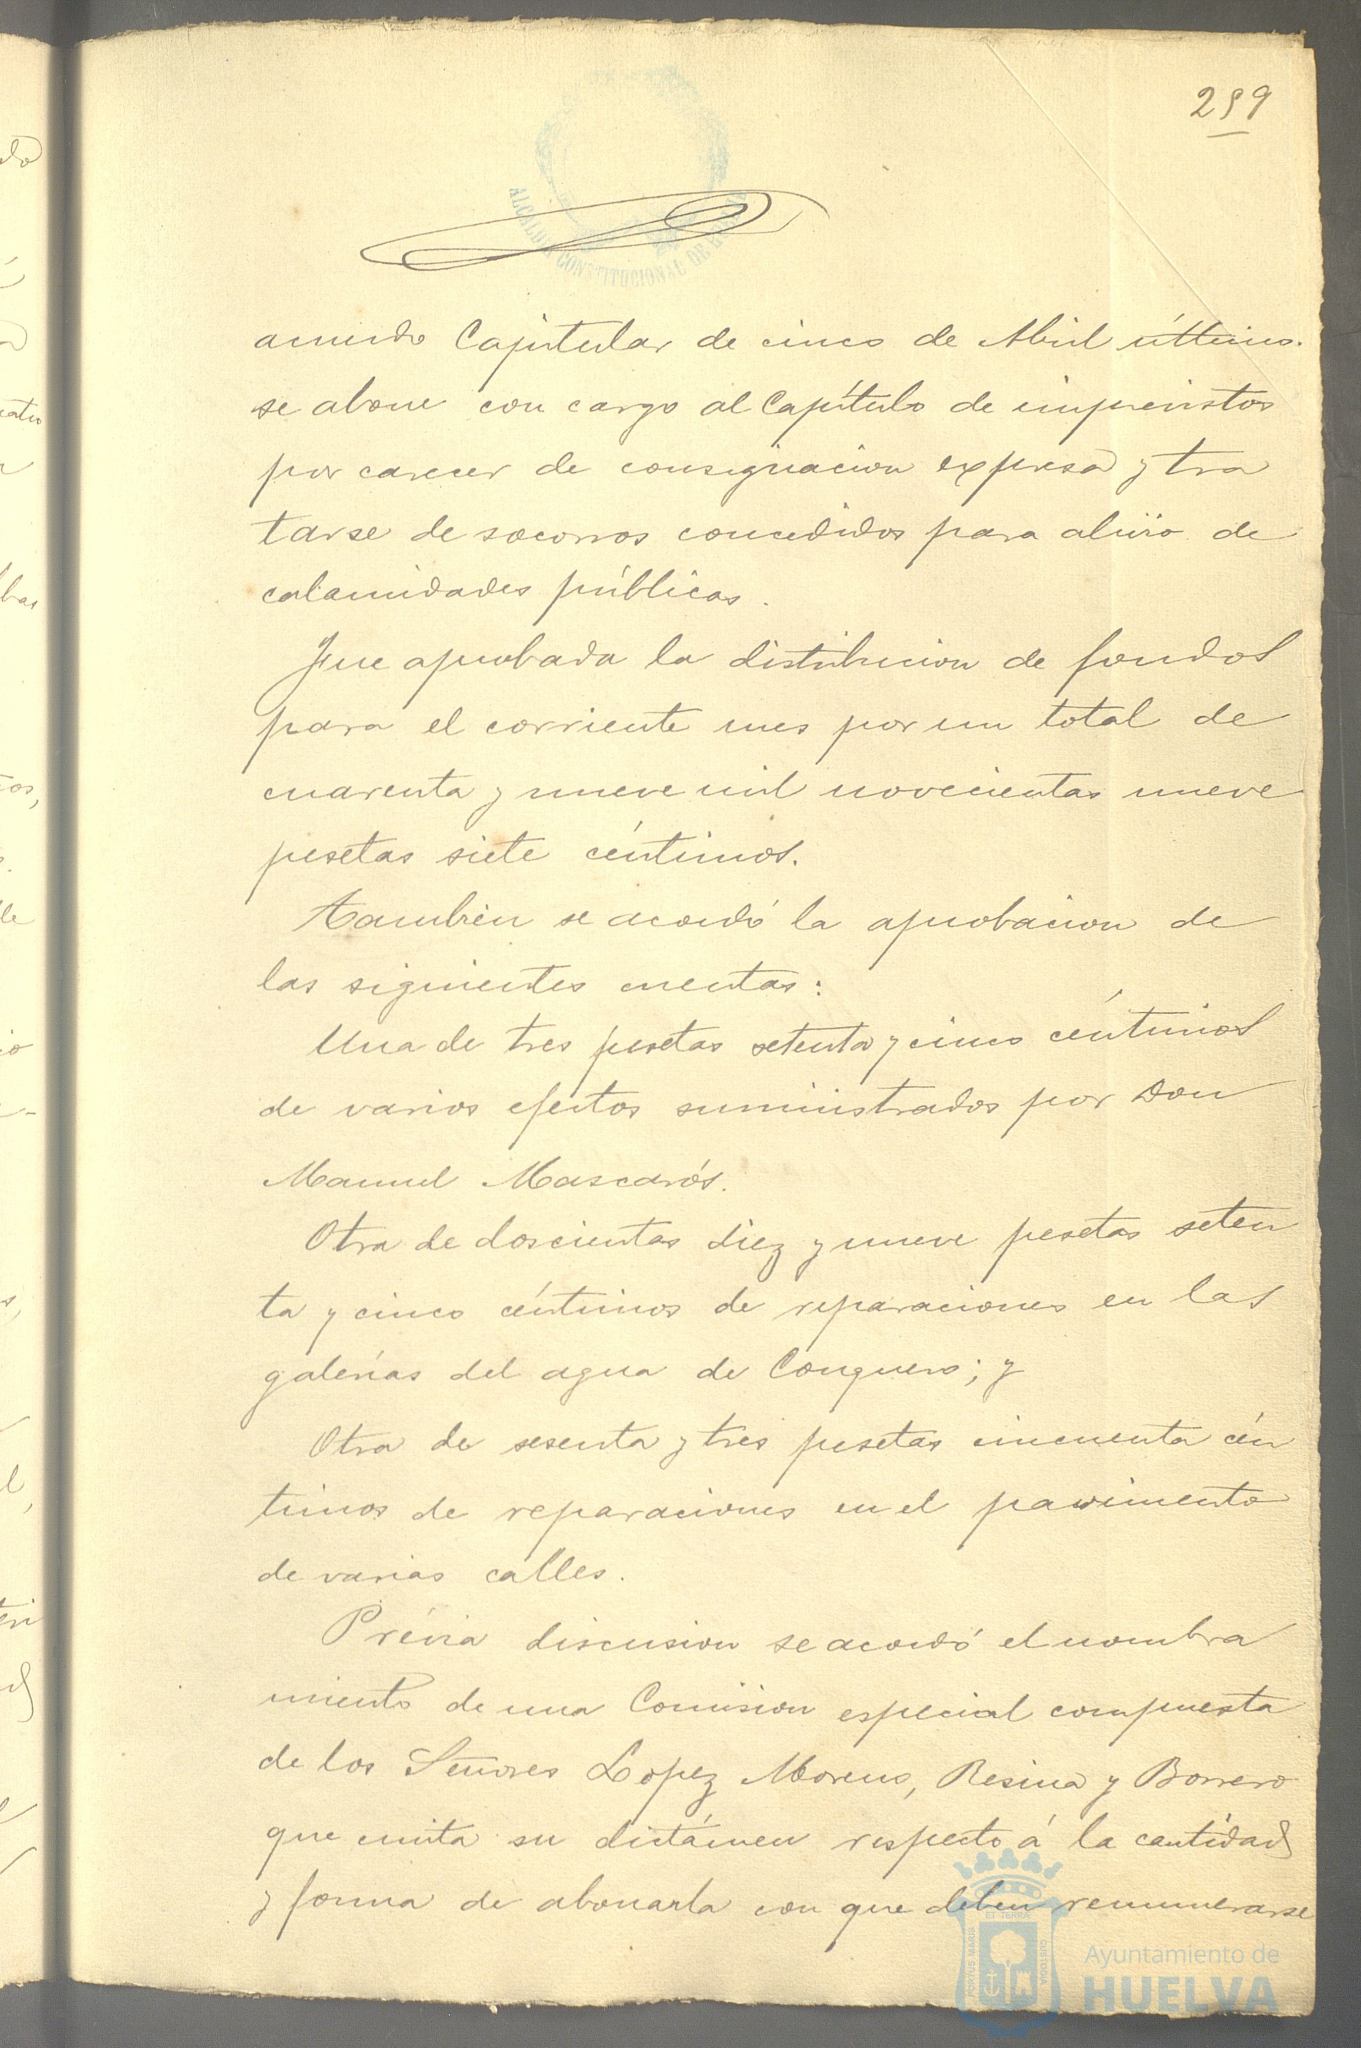 299
ALCALDIA CONSTITUCIONAL DE HUELVA
acuerdo Capitular de cinco de Abril último.
se abone con cargo al Capítulo de imprevistos
por carecer de consignacion expresa y tra
tarse de socorros concedidos para alivio de
calamidades públicas.
Fue aprobada la distribucion de fondos
para el corriente mes por un total de
cuarenta y nueve mil novecientas nueve
pesetas siete céntimos.
Tambien se acordó la aprobacion de
las siguientes cuentas:
Una de tres pesetas setenta y cinco céntimos
de varios efectos suministrados por Don
Manuel Mascarós.
Otra de doscientas diez y nueve pesetas seten
ta y cinco céntimos de reparaciones en las
galerías del agua de Conquero; y
Otra de sesenta y tres pesetas cincuenta cén
timos de reparaciones en el pavimento
de varias calles.
Prévia discusion se acordó el nombra
miento de una Comision especial compuesta
de los Señores Lopez Moreno, Resina y Borrero
que emita su dictámen respecto á la cantidad
y forma de abonarla con que deben remunerarse
Ayuntamiento de
HUELVA